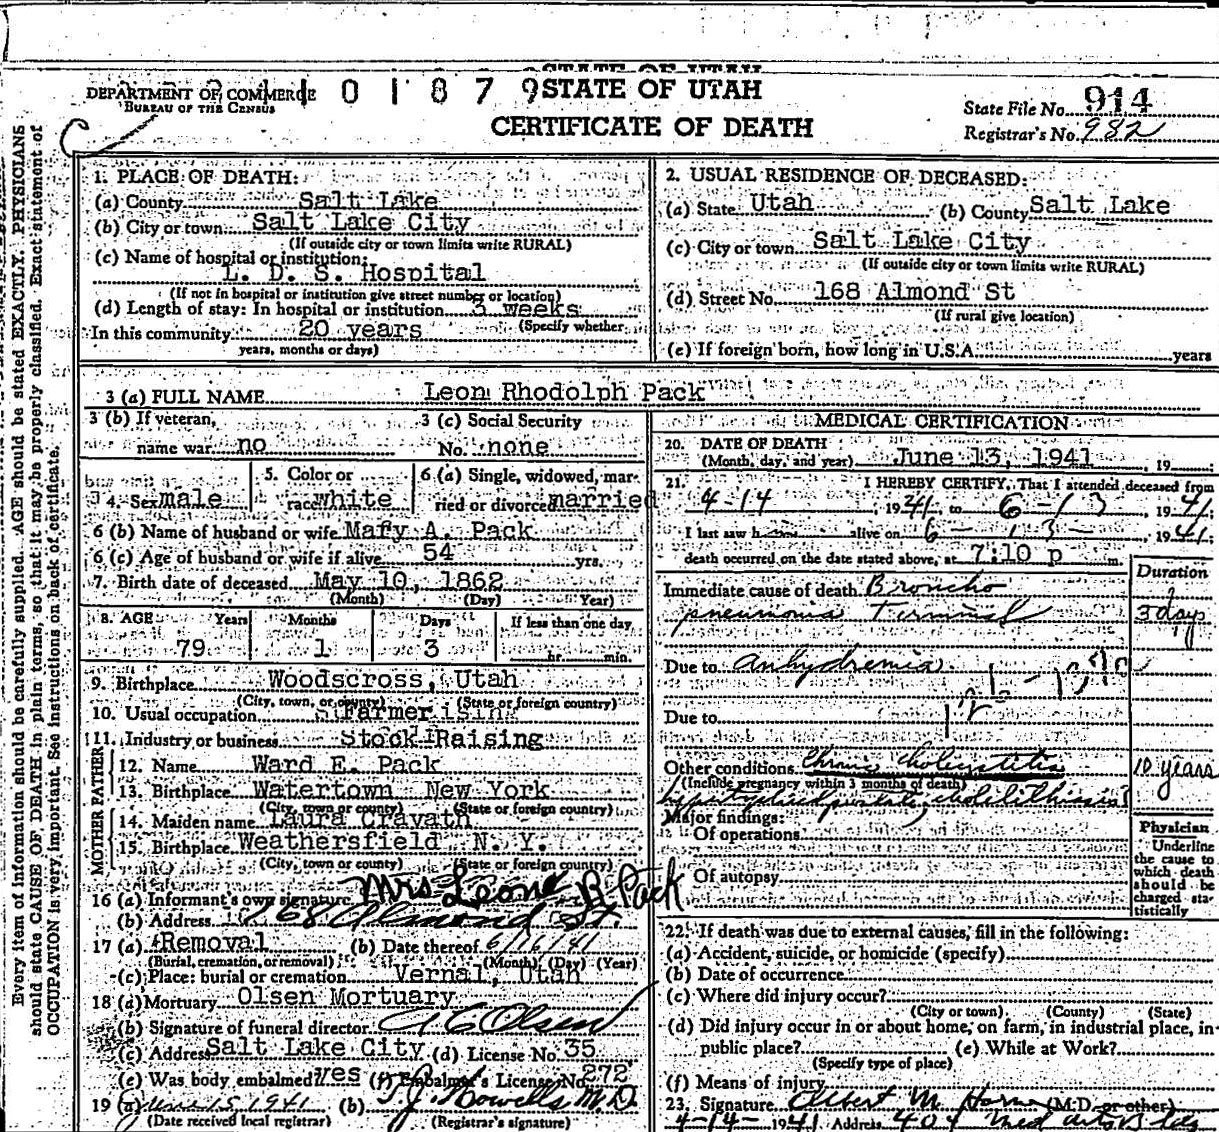 STATE OF UTAH
DEPARTMENT OF COMMERCE
BUREAU OF THE CENSUS
0 1 8 7 9
STATE OF UTAH
CERTIFICATE OF DEATH
State File No. 914
Registrar's No. 982
Every item of information should be carefully supplied. AGE should be stated EXACTLY. PHYSICIANS
should state CAUSE OF DEATH in plain terms, so that it may be properly classified. Exact statement of
OCCUPATION is very important. See instructions on back of certificate.
1. PLACE OF DEATH:
(a) County Salt Lake
(b) City or town Salt Lake City
(If outside city or town limits write RURAL)
(c) Name of hospital or institution:
L. D. S. Hospital
(If not in hospital or institution give street number or location)
(d) Length of stay: In hospital or institution 3 weeks
In this community 20 years (Specify whether
years, months or days)
2. USUAL RESIDENCE OF DECEASED:
(a) State Utah (b) County Salt Lake
(c) City or town Salt Lake City
(If outside city or town limits write RURAL)
(d) Street No. 168 Almond St
(If rural give location)
(e) If foreign born, how long in U.S.A. years
3 (a) FULL NAME Leon Rhodolph Pack
3 (b) If veteran,
name war no
3 (c) Social Security
No. none
4. Sex male
5. Color or
race white
6 (a) Single, widowed, mar-
ried or divorced married
6 (b) Name of husband or wife Mary A. Pack
6 (c) Age of husband or wife if alive 54 yrs.
7. Birth date of deceased May 10, 1862
(Month) (Day) Year)
8. AGE Years Months Days If less than one day
79 1 3 hr. min.
9. Birthplace Woodscross, Utah
(City, town, or county) (State or foreign country)
10. Usual occupation Farmer
11. Industry or business Stock Raising
FATHER
12. Name Ward E. Pack
13. Birthplace Watertown New York
(City, town or county) (State or foreign country)
MOTHER
14. Maiden name Laura Cravath
15. Birthplace Weathersfield N. Y.
(City, town or county) (State or foreign country)
16 (a) Informant's own signature Mrs Leone B. Pack
(b) Address 168 Almond St.
17 (a) Removal (b) Date thereof 6/16/41
(Burial, cremation, or removal) (Month) (Day) (Year)
(c) Place: burial or cremation Vernal, Utah
18 (a) Mortuary Olsen Mortuary
(b) Signature of funeral director A C Olsen
(c) Address Salt Lake City (d) License No. 35
(e) Was body embalmed? yes (f) Embalmer's License No. 272
19 (a) June 15 1941 (b) T. J. Howells M. D
(Date received local registrar) (Registrar's signature)
MEDICAL CERTIFICATION
20. DATE OF DEATH
(Month, day, and year) June 13, 1941, 19
21. I HEREBY CERTIFY, That I attended deceased from
4-14, 1941, to 6-13, 1941,
I last saw h alive on 6-13-, 1941;
death occurred on the date stated above, at 7:10 p m.
Duration
Immediate cause of death Broncho
pneumonia Terminal 3 days
Due to Anhydremia
Due to
Other conditions Chronic Cholecystitis 10 years
(Include pregnancy within 3 months of death)
cholelithiasis
Major findings:
Of operations
Of autopsy
Physician
Underline
the cause to
which death
should be
charged sta-
tistically
22. If death was due to external causes, fill in the following:
(a) Accident, suicide, or homicide (specify)
(b) Date of occurrence
(c) Where did injury occur?
(City or town) (County) (State)
(d) Did injury occur in or about home, on farm, in industrial place, in
public place? (e) While at Work?
(Specify type of place)
(f) Means of injury
23. Signature Albert M. (M.D. or other)
4-14-1941 Address 404 Med Arts Bldg